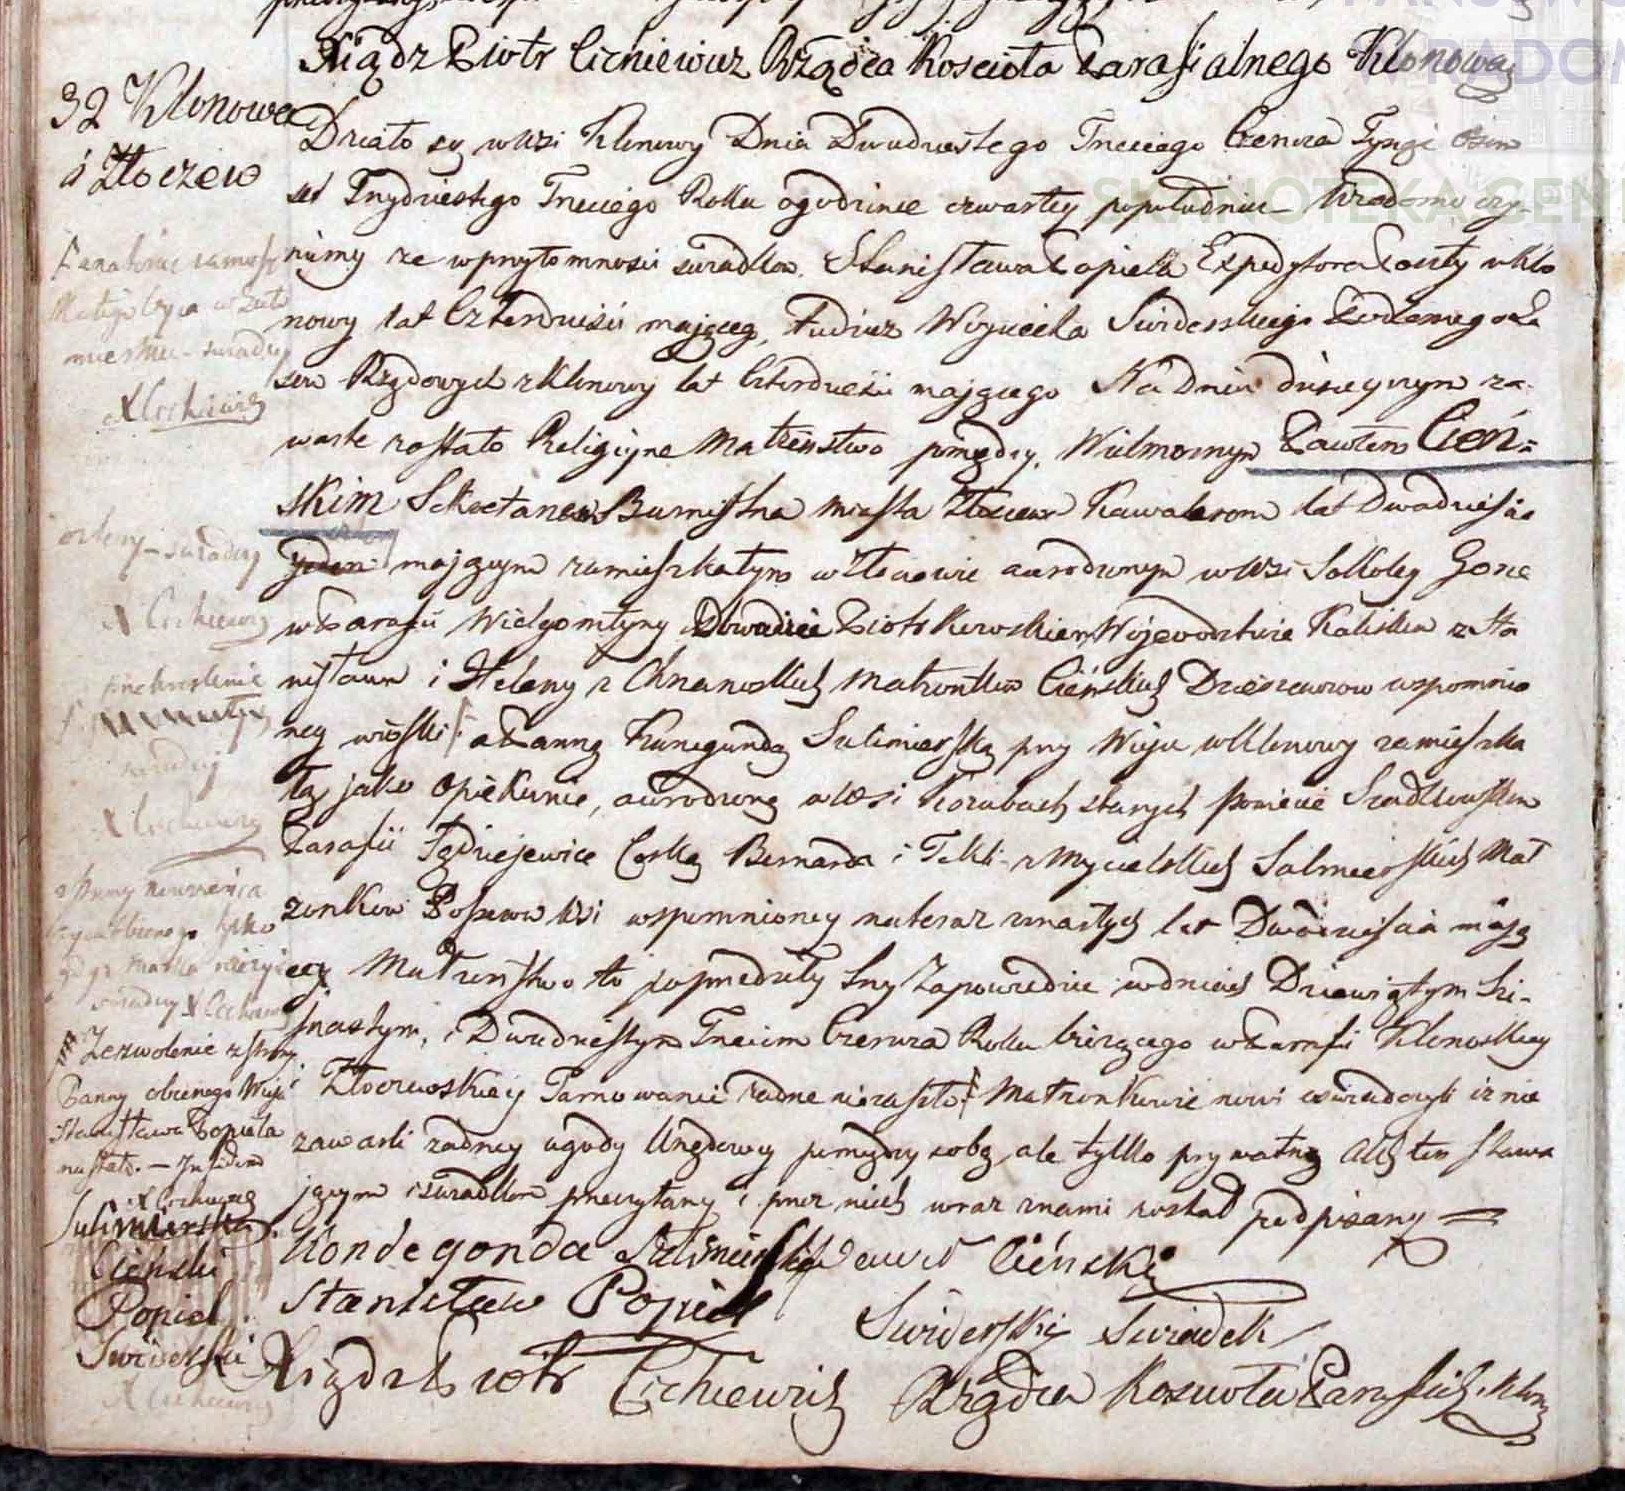 Xiądz Piotr Cichiewicz Rządca Kościoła Parafialnego Klonowa
32 Klonowa
i Złoczew
Działo się w wsi Klonowy Dnia Dwudziestego Trzeciego Czerwca Tysiąc Ośm
set Trzydziestego Trzeciego Roku o godzinie czwartey popołudniu – Wiadomo czy-
nimy że w przytomności świadków Stanisława Popiela Expedytora Poczty w Klo
nowy lat Czterdzieści mającego, tudzież Woyciecha Swiderskiego Podleśnego La
sów Rządowych z Klonowy lat Czterdzieści mającego Na Dniu dzisieyszym za-
warte zostało Religijne Małżeństwo pomiędzy Wielmożnym Pawłem Cień-
skim Sekretarzem Burmistrza miasta Złoczewa Kawalerem lat Dwadzieścia
jeden mającym zamieszkałym w Złoczewie a urodzonym w wsi Sokoley Górze
w Parafii Wielgomłyny Obwodzie Piotrkowskiem Województwie Kaliskim z Sta
nisława i Heleny z Chrzanoskich Małżonków Cieńskich Dzierżawców wspomnio
ney wioski a Panną Kunegundą Sulimierską przy Wuju w Klonowy zamieszka
łą jako Opiekunie, a urodzoną w wsi Kozubach starych Powiecie Szadkowskim
Parafii Sędziejewice Córką Bernarda i Tekli z Mycielskich Sulimierskich Mał
żonków Possessorów Wsi wspomnioney na teraz zmarłych lat Dwadzieścia mają
cą Małżeństwo to poprzedziły trzy Zapowiedzie w dniach Dziewiątym Sze-
snastym, i Dwudziestym Trzecim Czerwca Roku bieżącego w Parafii Klonoskiey
i Złoczewskiey Tamowanie żadne nie zaszło Małżonkowie nowi oświadczyli iż nie
zawarli żadney ugody Urzędowy pomiędzy sobą, ale tylko prywatną Akt ten stawa
jącym i świadkom przeczytany i przez nich wraz z nami został podpisany
Kondegonda Sulimierska Paweł Cieński
Stanisław Popiel
Swiderski Swiadek
Xiądz Piotr Cichiewicz Rządca Kościoła Parafial. Klon
świadczy
X Cichiewicz
przekreślenie
X Cichiewicz
Zezwolenie z strony
Panny obecnego Wuja
Stanisława Popiela
nastało. –
X Cichiewicz
Sulimierska
Cieński
Popiel
Swiderski
X Cichiewicz